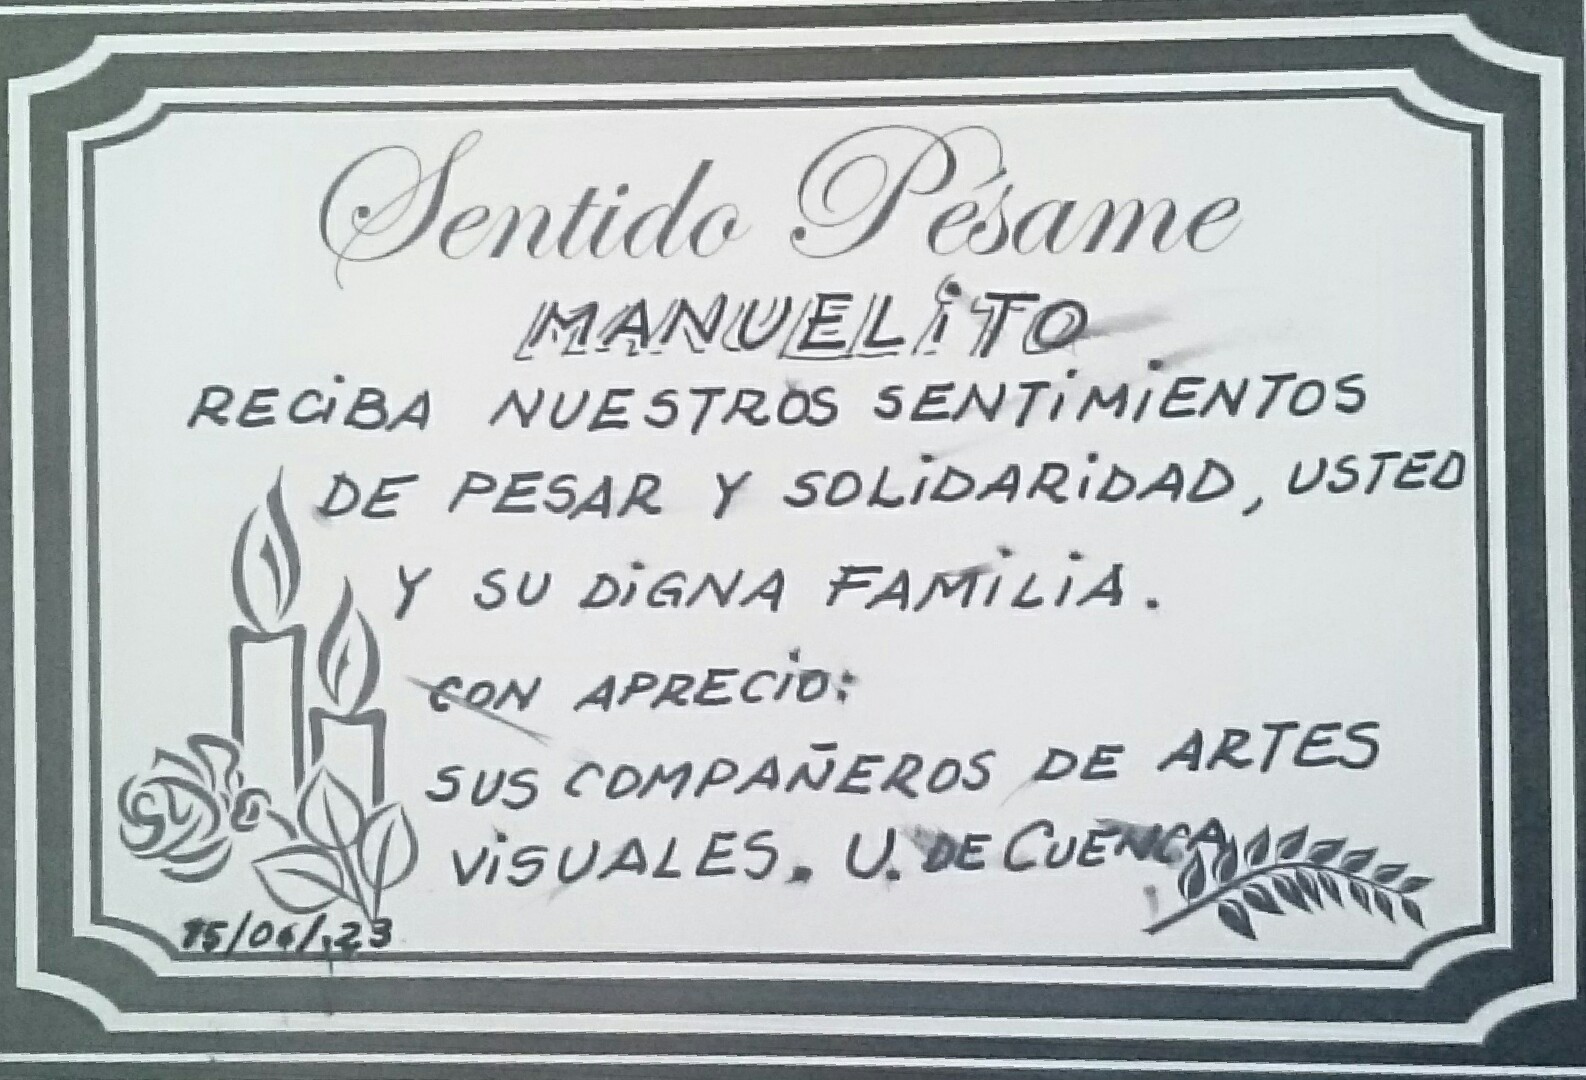 Sentido Pésame
MANUELiTO
RECiBA NUESTROS SENTiMiENTOS
DE PESAR Y SOLiDARiDAD, USTED
Y SU DiGNA FAMiLiA.
CON APRECiO:
SUS COMPAÑEROS DE ARTES
ViSUALES. U. DE CUENCA
15/06/,23